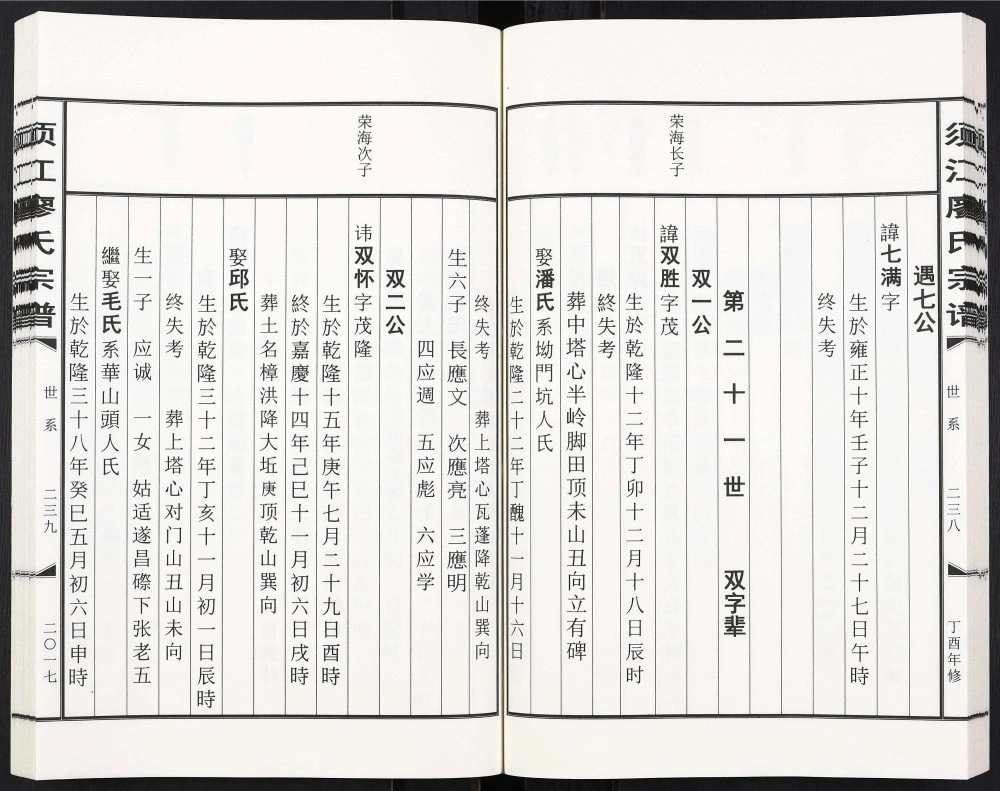 须江廖氏宗谱
世系
二三八
丁酉年修
遇七公
諱七满字
生於雍正十年壬子十二月二十七日午時
终失考
第二十一世 双字辈
双一公
荣海长子
諱双胜字茂
生於乾隆十二年丁卯十二月十八日辰时
終失考
葬中塔心半岭脚田顶未山丑向立有碑
娶潘氏系坳門坑人氏
生於乾隆二十二年丁醜十一月十六日
终失考 葬上塔心瓦蓬降乾山巽向
生六子 長應文 次應亮 三應明
四应週 五应彪 六应学
双二公
荣海次子
讳双怀字茂隆
生於乾隆十五年庚午七月二十九日酉時
終於嘉慶十四年己巳十一月初六日戌時
葬土名樟洪降大坵庚顶乾山巽向
娶邱氏
生於乾隆三十二年丁亥十一月初一日辰時
终失考 葬上塔心对门山丑山未向
生一子 应诚 一女 姑适遂昌磜下张老五
繼娶毛氏系華山頭人氏
生於乾隆三十八年癸巳五月初六日申時
须江廖氏宗谱
世系
二三九
二〇一七